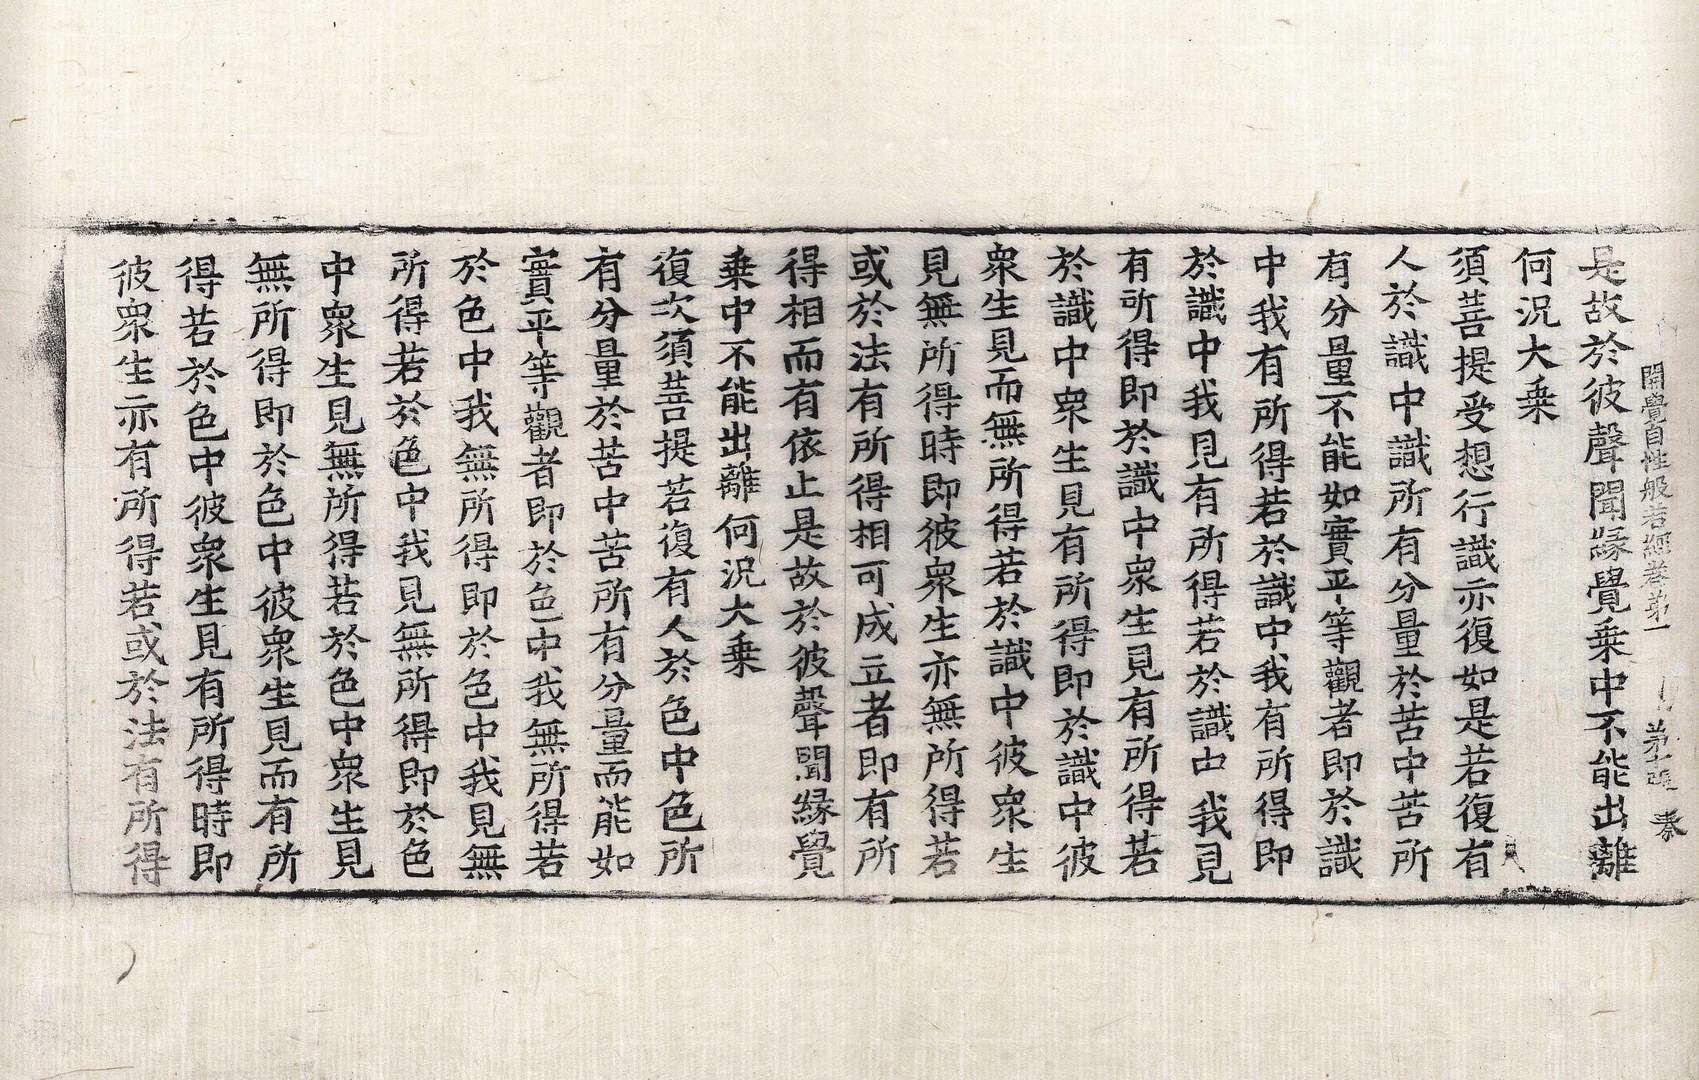 開覺自性般若經卷第一 第十張 奉
是故於彼聲聞緣覺乘中不能出離
何況大乘
須菩提受想行識亦復如是若復有
人於識中識所有分量於苦中苦所
有分量不能如實平等觀者即於識
中我有所得若於識中我有所得即
於識中我見有所得若於識中我見
有所得即於識中衆生見有所得若
於識中衆生見有所得即於識中彼
衆生見而無所得若於識中彼衆生
見無所得時即彼衆生亦無所得若
或於法有所得相可成立者即有所
得相而有依止是故於彼聲聞緣覺
乘中不能出離何況大乘
復次須菩提若復有人於色中色所
有分量於苦中苦所有分量而能如
實平等觀者即於色中我無所得若
於色中我無所得即於色中我見無
所得若於色中我見無所得即於色
中衆生見無所得若於色中衆生見
無所得即於色中彼衆生見而有所
得若於色中彼衆生見有所得時即
彼衆生亦有所得若或於法有所得